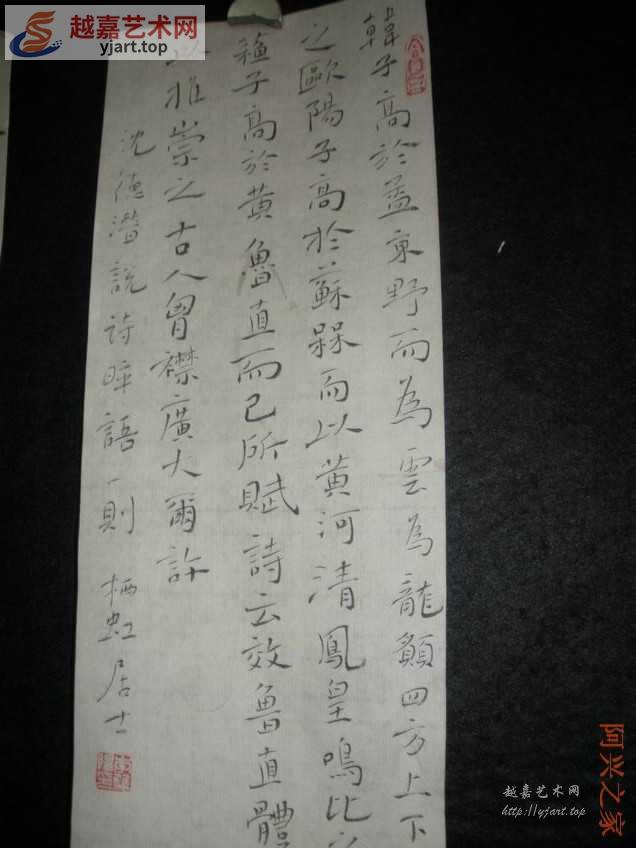 韓子高於孟東野而為雲為龍願四方上下
之歐陽子高於蘇槑而以黃河清鳳皇鳴比
蘇子高於黃魯直而已所賦詩云效魯直體
以推崇之古人胷襟廣大爾許
沈德潛說詩晬語一則 栖虹居士
越嘉艺术网
yjart.top
阿兴之家
越嘉艺术网
http://yjart.top